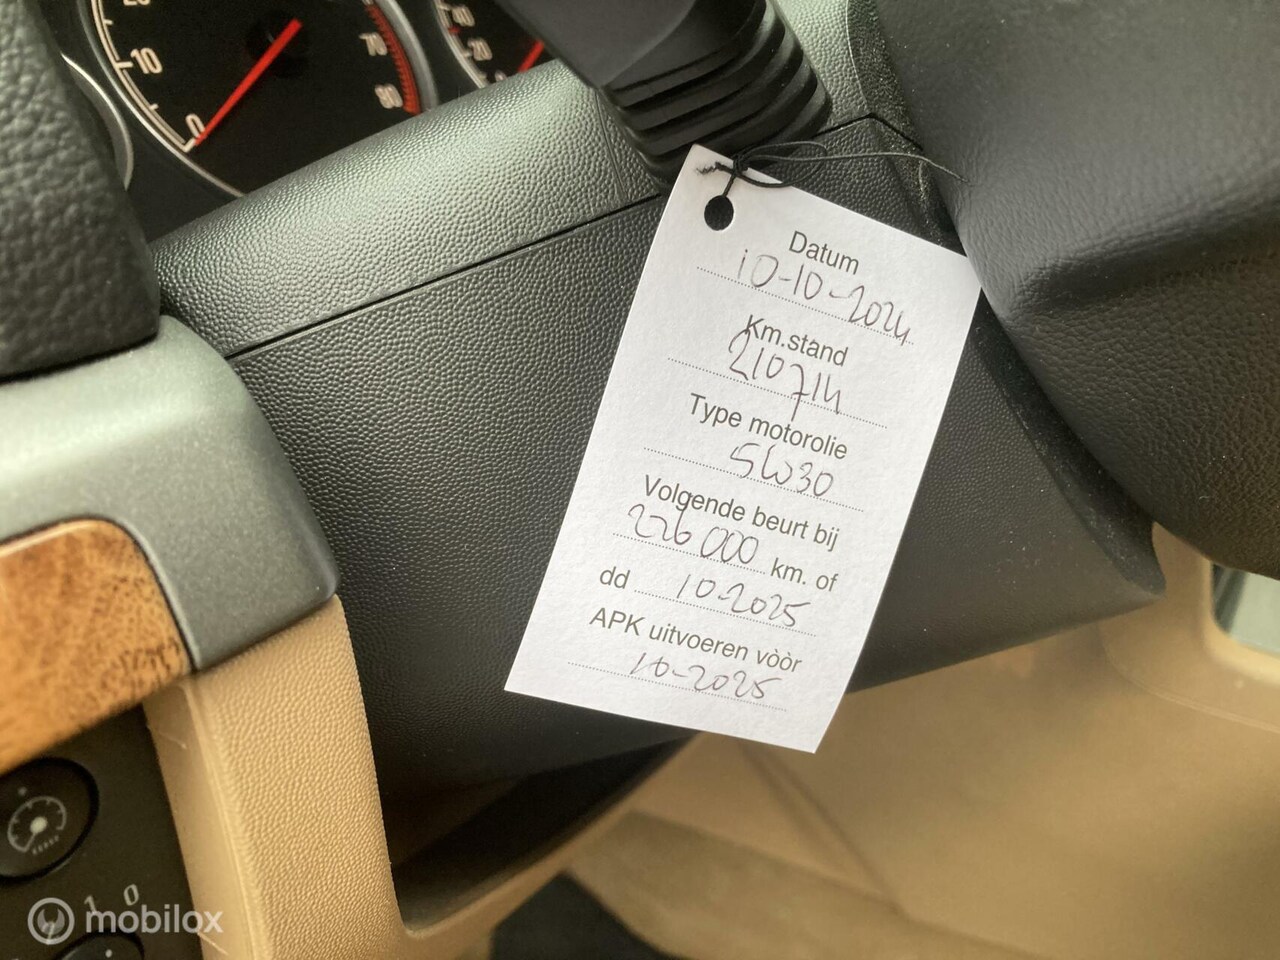 10
0
Datum
10-10-2024
Km.stand
210714
Type motorolie
5W30
Volgende beurt bij
226000 km. of
dd 10-2025
APK uitvoeren vòòr
10-2025
1 0
mobilox